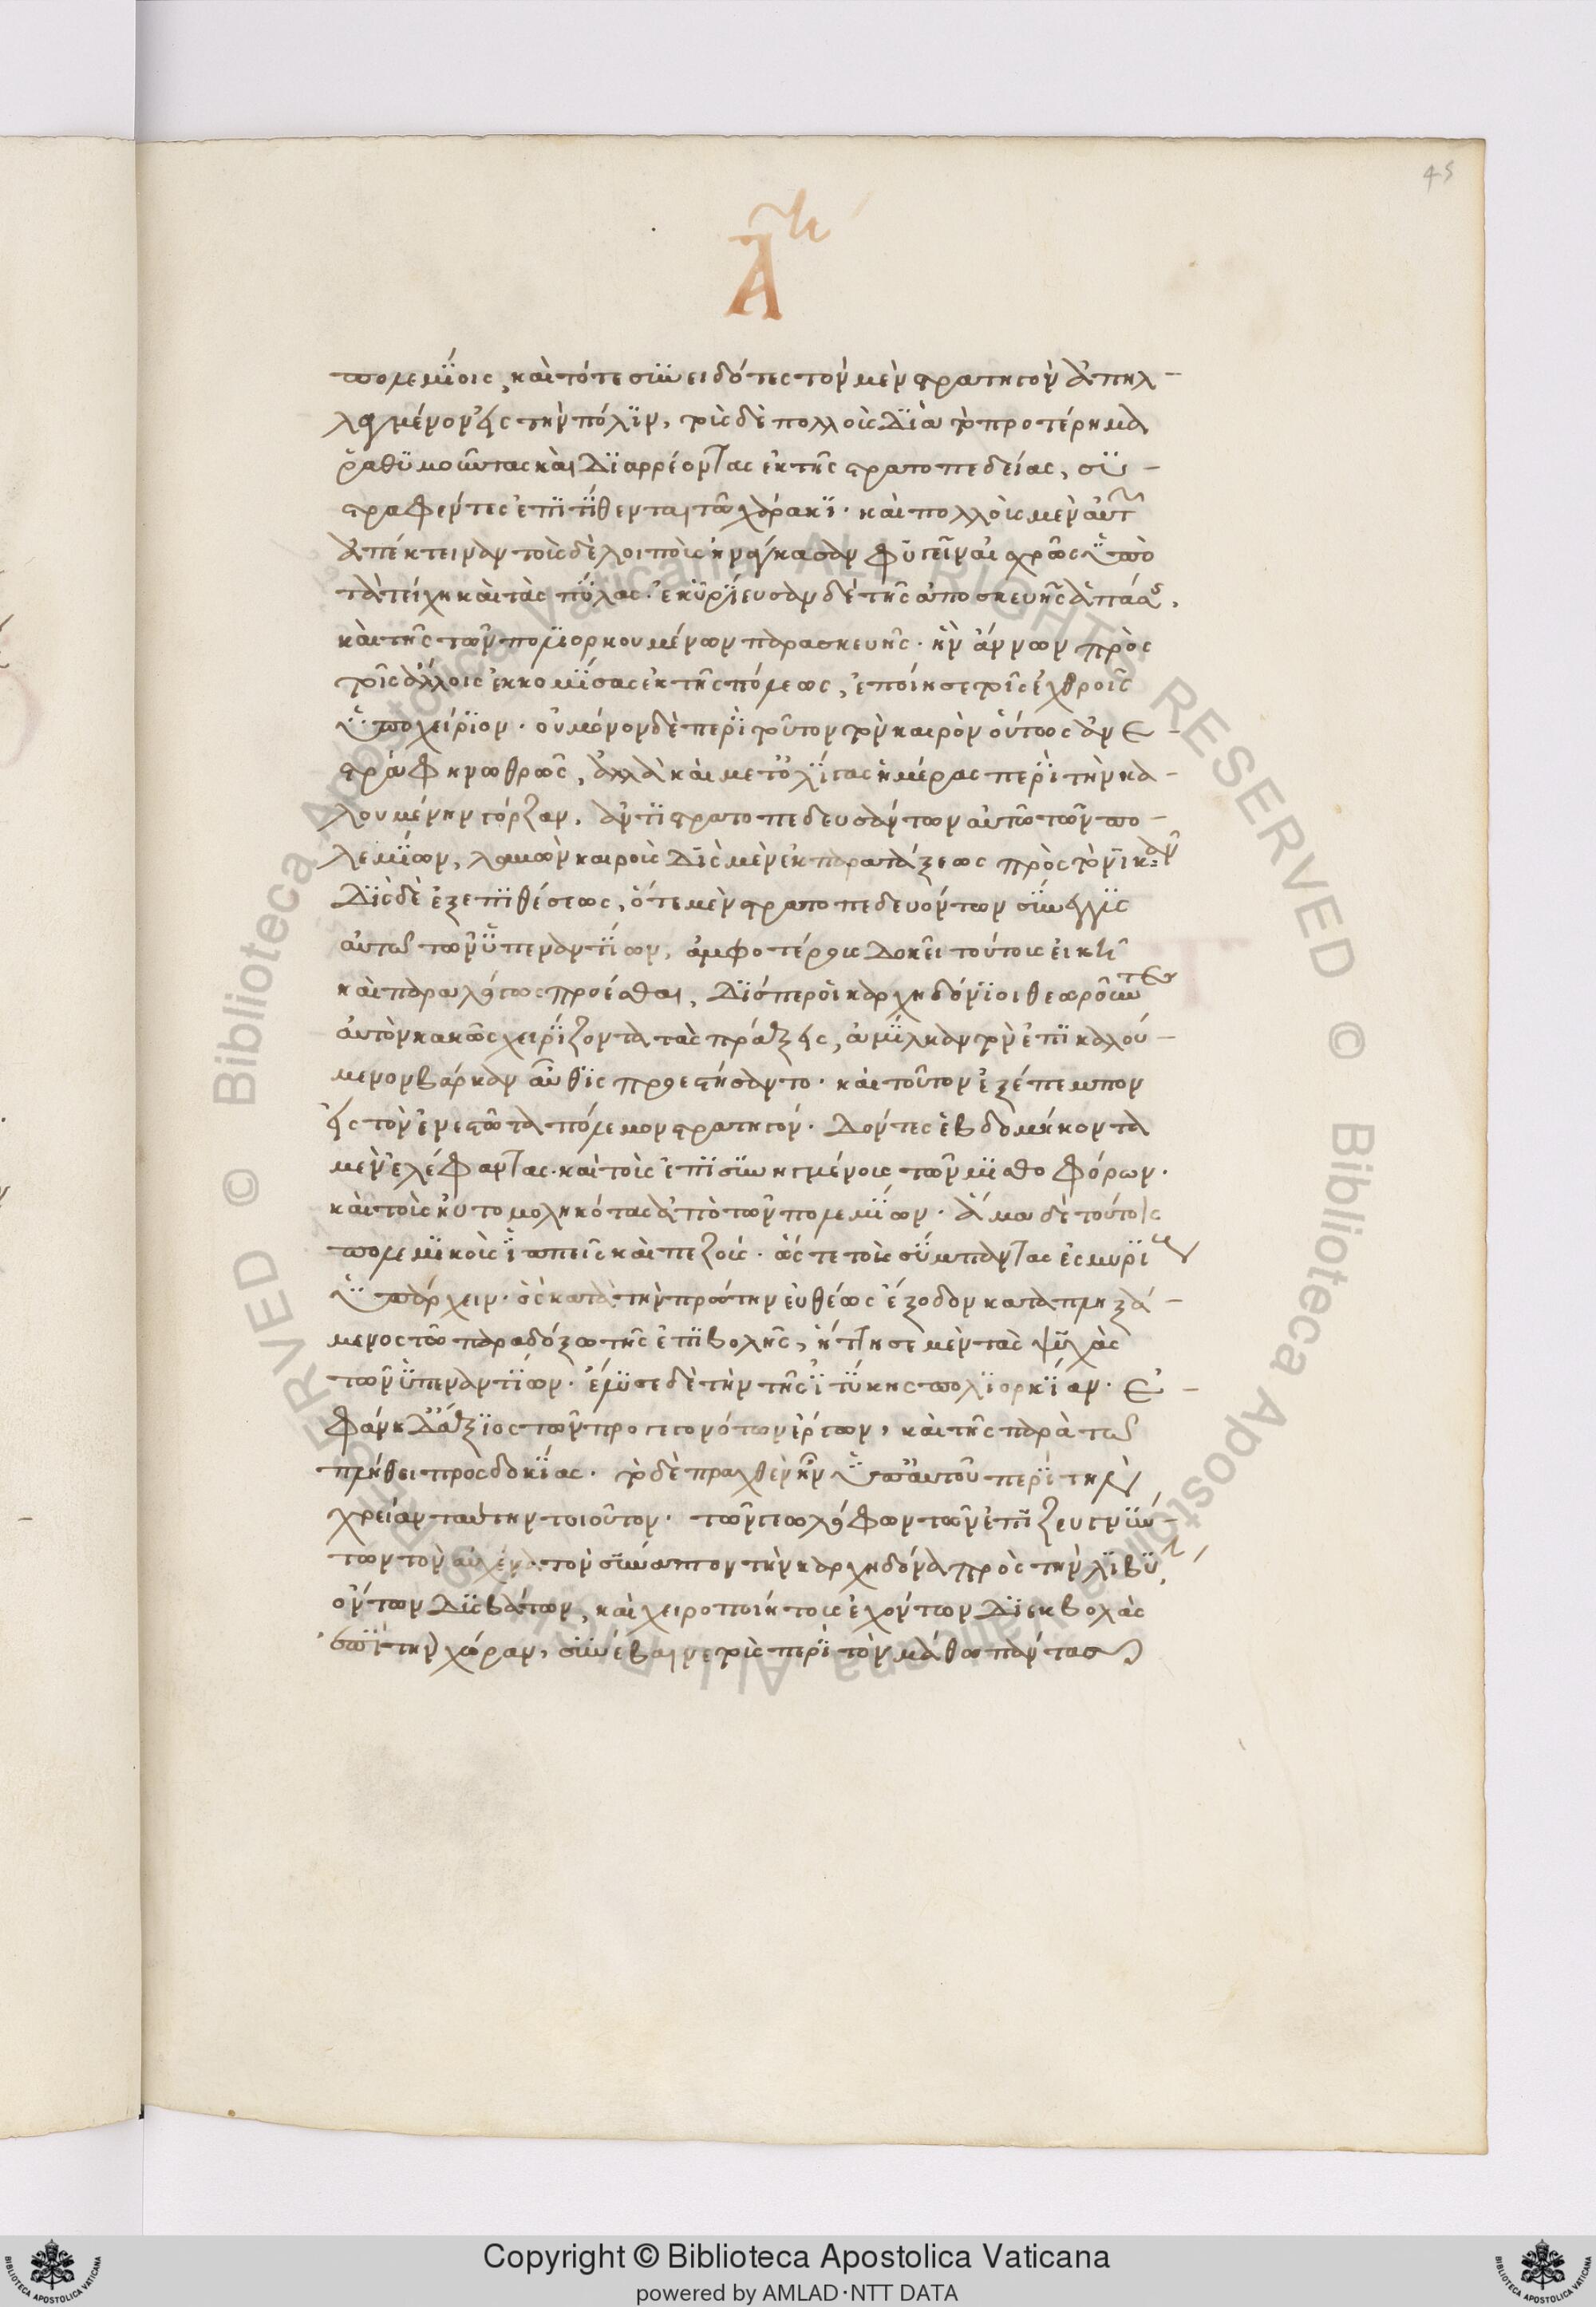 45
πολεμίοις, καὶ τότε συνειδότες τὸν μὲν στρατηγὸν ἀπηλ-
λαγμένον εἰς τὴν πόλιν, τοὺς δὲ πολλοὺς διὰ τὸ προτέρημα
ῥαθυμοῦντας καὶ διαρρέοντας ἐκ τῆς στρατοπεδείας, συ-
στραφέντες ἐπιτίθενται τῶ χάρακι· καὶ πολλοὺς μὲν αὐτῶν
ἀπέκτειναν τοὺς δὲ λοιποὺς ἠνάγκασαν φυγεῖν αἰσχρῶς ὑπὸ
τὰ τείχη καὶ τὰς πύλας· ἐκυρίευσαν δὲ τῆς ἀποσκευῆς ἁπάσης,
καὶ τῆς τῶν πολιορκουμένων παρασκευῆς· ἣν ἅννων πρὸς
τοῖς ἄλλοις ἐκκομίσας ἐκ τῆς πόλεως, ἐποίησε τοῖς ἐχθροῖς
ὑποχείριον· οὐ μόνον δὲ περὶ τοῦτον τὸν καιρὸν οὕτως ἀνε-
στράφη νωθρῶς, ἀλλὰ καὶ μετ' ὀλίγας ἡμέρας περὶ τὴν κα-
λουμένην γόρζαν, ἀντιστρατοπεδευσάντων αὐτῶ τῶν πο-
λεμίων, λαβὼν καιροὺς δὶς μὲν ἐκ παρατάξεως πρὸς τὸ νικᾶν
δὶς δὲ ἐξ ἐπιθέσεως, ὅτε μὲν στρατοπεδευόντων σύνεγγυς
αὐτῶ τῶν ὑπεναντίων, ἀμφοτέρους δοκεῖ τούτους εἰκῆ
καὶ παραλόγως προέσθαι, διόπερ οἱ καρχηδόνιοι θεωροῦντες
αὐτὸν κακῶς χειρίζοντα τὰς πράξεις, ἀμίλκαν τὸν ἐπικαλού-
μενον βάρκαν αὖθις προεστήσαντο· καὶ τοῦτον ἐξέπεμπον
εἰς τὸν ἐνεστῶτα πόλεμον στρατηγόν· δόντες ἑβδομήκοντα
μὲν ἐλέφαντας· καὶ τοὺς ἐπισυνηγμένους τῶν μισθοφόρων·
καὶ τοὺς ηὐτομοληκότας ἀπὸ τῶν πολεμίων· ἅμα δὲ τούτοις
πολεμικοὺς ἱππεῖς καὶ πεζούς· ὥστε τοὺς σύμπαντας εἰς μυρίους
ὑπάρχειν· ὃς κατὰ τὴν πρώτην εὐθέως ἔξοδον καταπληξά-
μενος τῶ παραδόξω τῆς ἐπιβολῆς, ἥττησε μὲν τὰς ψυχὰς
τῶν ὑπεναντίων· ἔλυσε δὲ τὴν τῆς ἰτύκης πολιορκίαν· ἐ-
φάνη δ' ἄξιος τῶν προγεγονότων ἔργων, καὶ τῆς παρὰ τῶ
πλήθει προσδοκίας· τὸ δὲ πραχθὲν ἦν ὑπ' αὐτοῦ περὶ τὴν
χρείαν ταύτην τοιοῦτον· τῶν γεωλόφων τῶν ἐπιζευγνύν-
των τὸν αὐχένα τὸν συνάπτοντα τὴν καρχηδόνα πρὸς τὴν λιβύην,
ὄντων δυσβάτων, καὶ χειροποιήτους ἐχόντων διεκβολὰς
ἐπὶ τὴν χώραν, συνέβαινε τοὺς περὶ τὸν μάθω πάντας